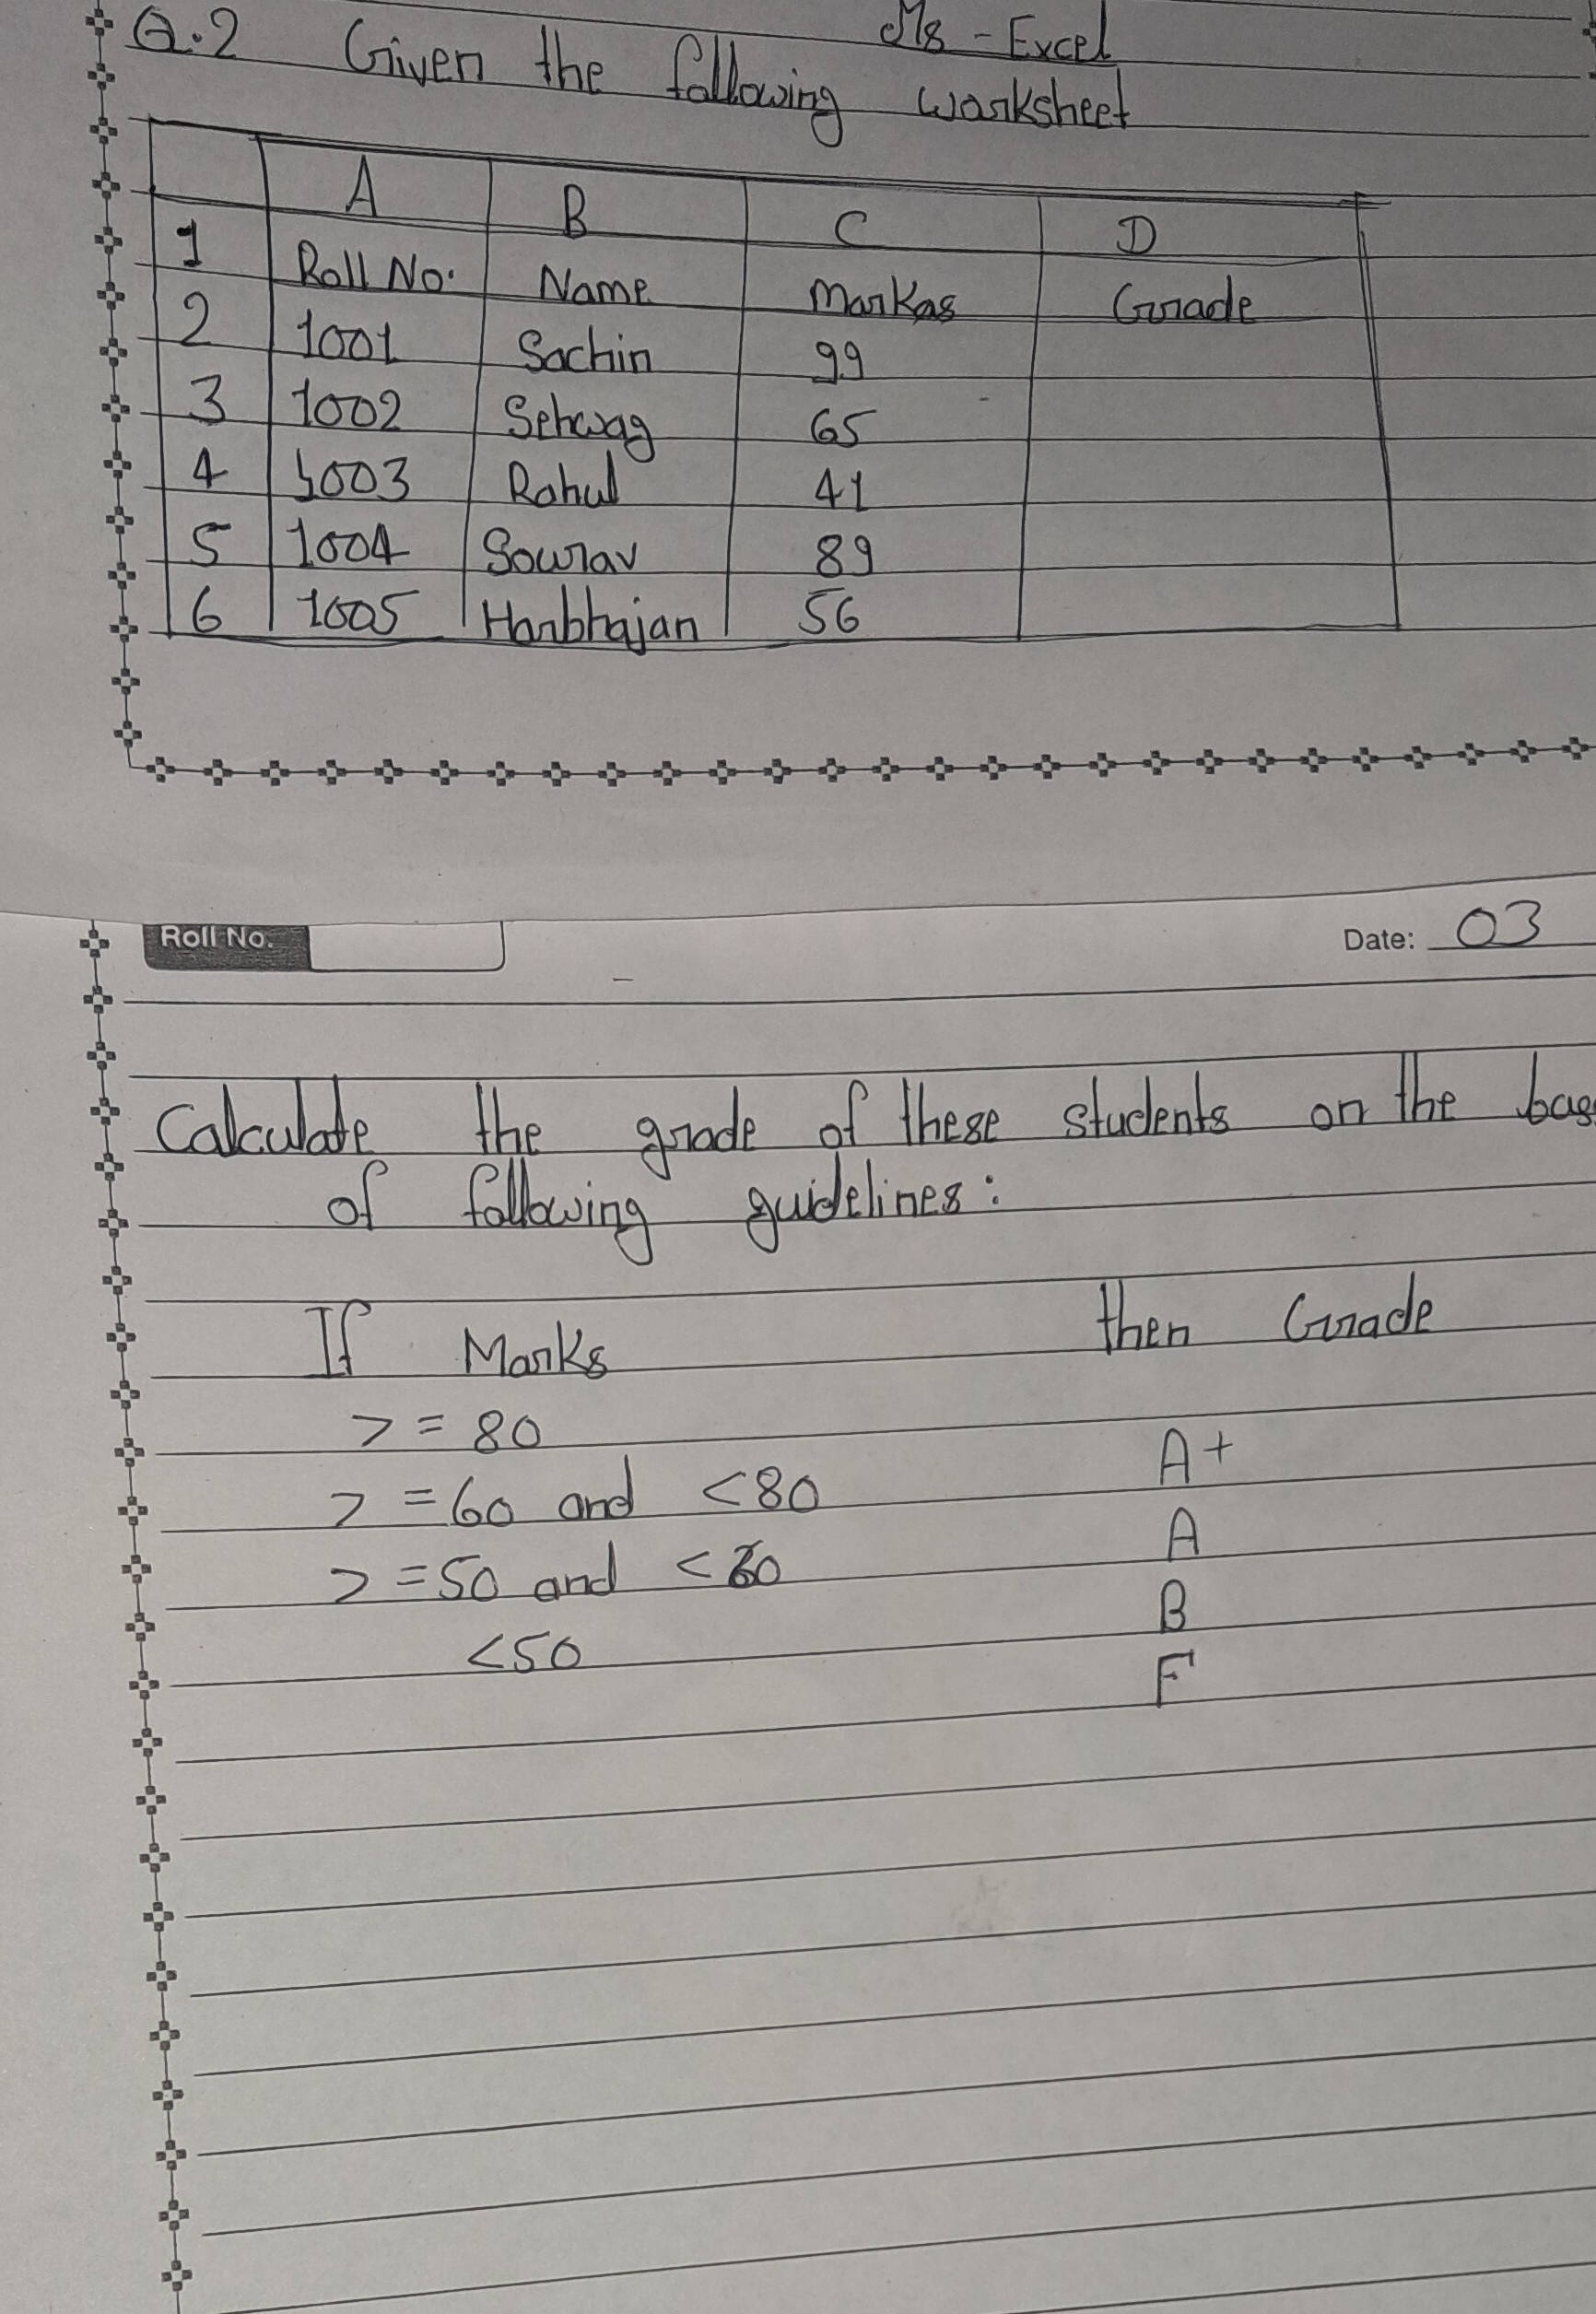 Ms - Excel
Q.2 Given the following worksheet
A B C D
1 Roll No. Name Markas Grade
2 1001 Sachin 99
3 1002 Sehwag 65
4 1003 Rahul 41
5 1004 Sourav 89
6 1005 Harbhajan 56
Roll No.
Date: 03
Calculate the grade of these students on the bas
of following guidelines:
If Marks then Grade
>=80 A+
>=60 and <80 A
>=50 and <60 B
<50 F